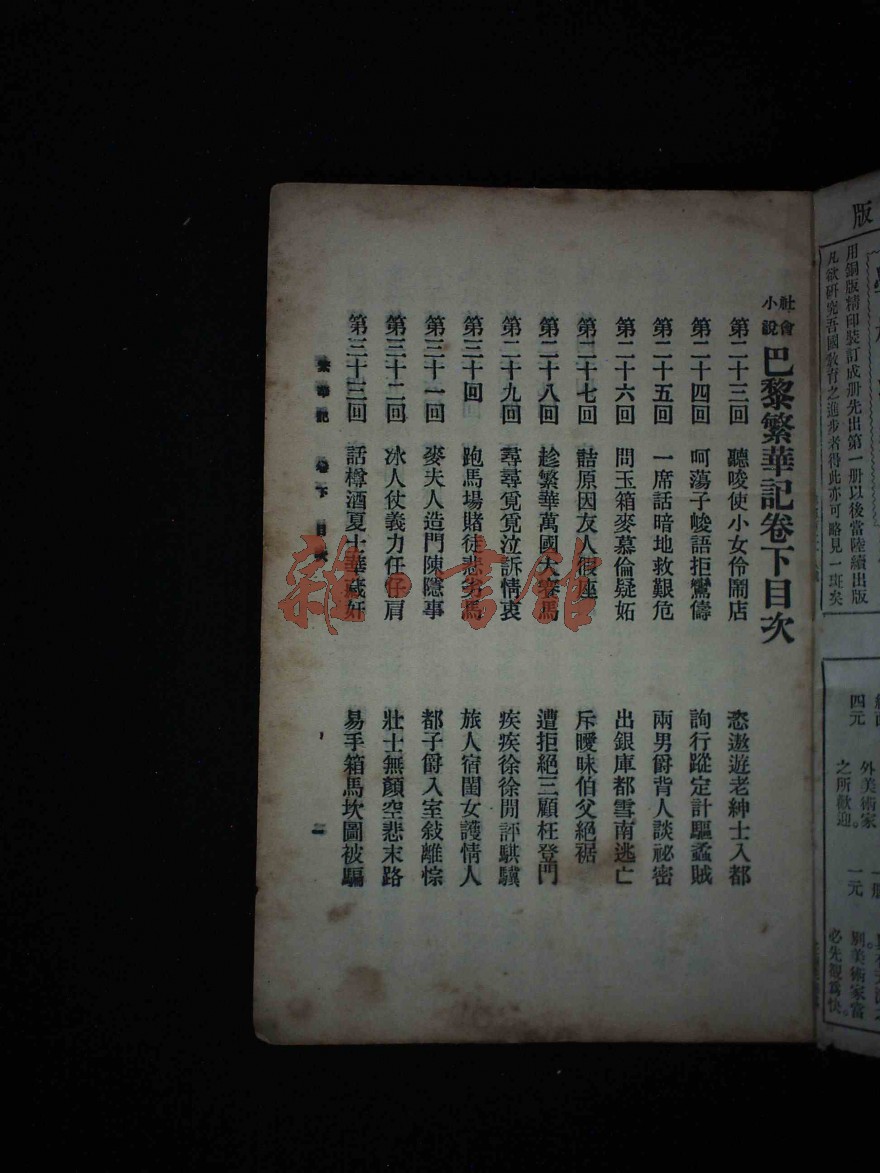 社會小說 巴黎繁華記卷下目次
第二十三回 聽唆使小女伶鬧店 恣遨遊老紳士入都
第二十四回 呵蕩子峻語拒鸞儔 詢行蹤定計驅蟊賊
第二十五回 一席話暗地救艱危 兩男爵背人談祕密
第二十六回 問玉箱麥慕倫疑妬 出銀庫都雪南逃亡
第二十七回 詰原因友人 座 斥曖昧伯父絕裾
第二十八回 趁繁華萬國大賽馬 遭拒絕三顧枉登門
第二十九回 尋尋覓覓泣訴情衷 疾疾徐徐閒評騏驥
第三十回 跑馬場賭徒悲劣馬 旅人宿閨女護情人
第三十一回 麥夫人造門陳隱事 都子爵入室敍離悰
第三十二回 冰人仗義力任仔肩 壯士無顏空悲末路
第三十三回 話樽酒夏士華藏奸 易手箱馬坎圖被騙
繁華記 卷下 目次 一
雜·書館
版
用銅版精印裝訂成册先出第一册以後當陸續出版
凡欲硏究吾國敎育之進步者得此亦可略見一斑矣
四元
外美術家
之所歡迎
一元
別美術家當
必先覩爲快。